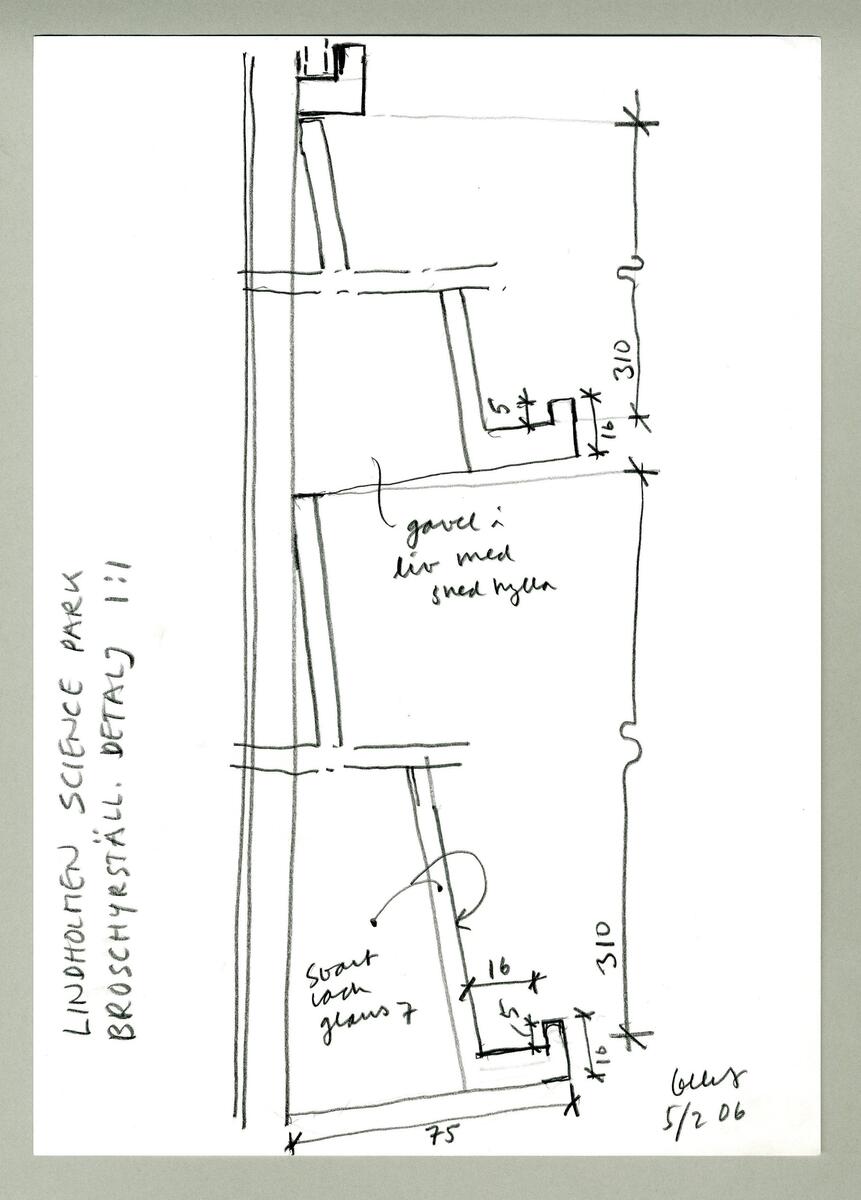 LINDHOLMEN SCIENCE PARK
BROSCHYRSTÄLL. DETALJ 1:1
310
5
16
gavel i
liv med
sned hylla
310
svart
lack
glans 7
16
5
16
75
5/2 06